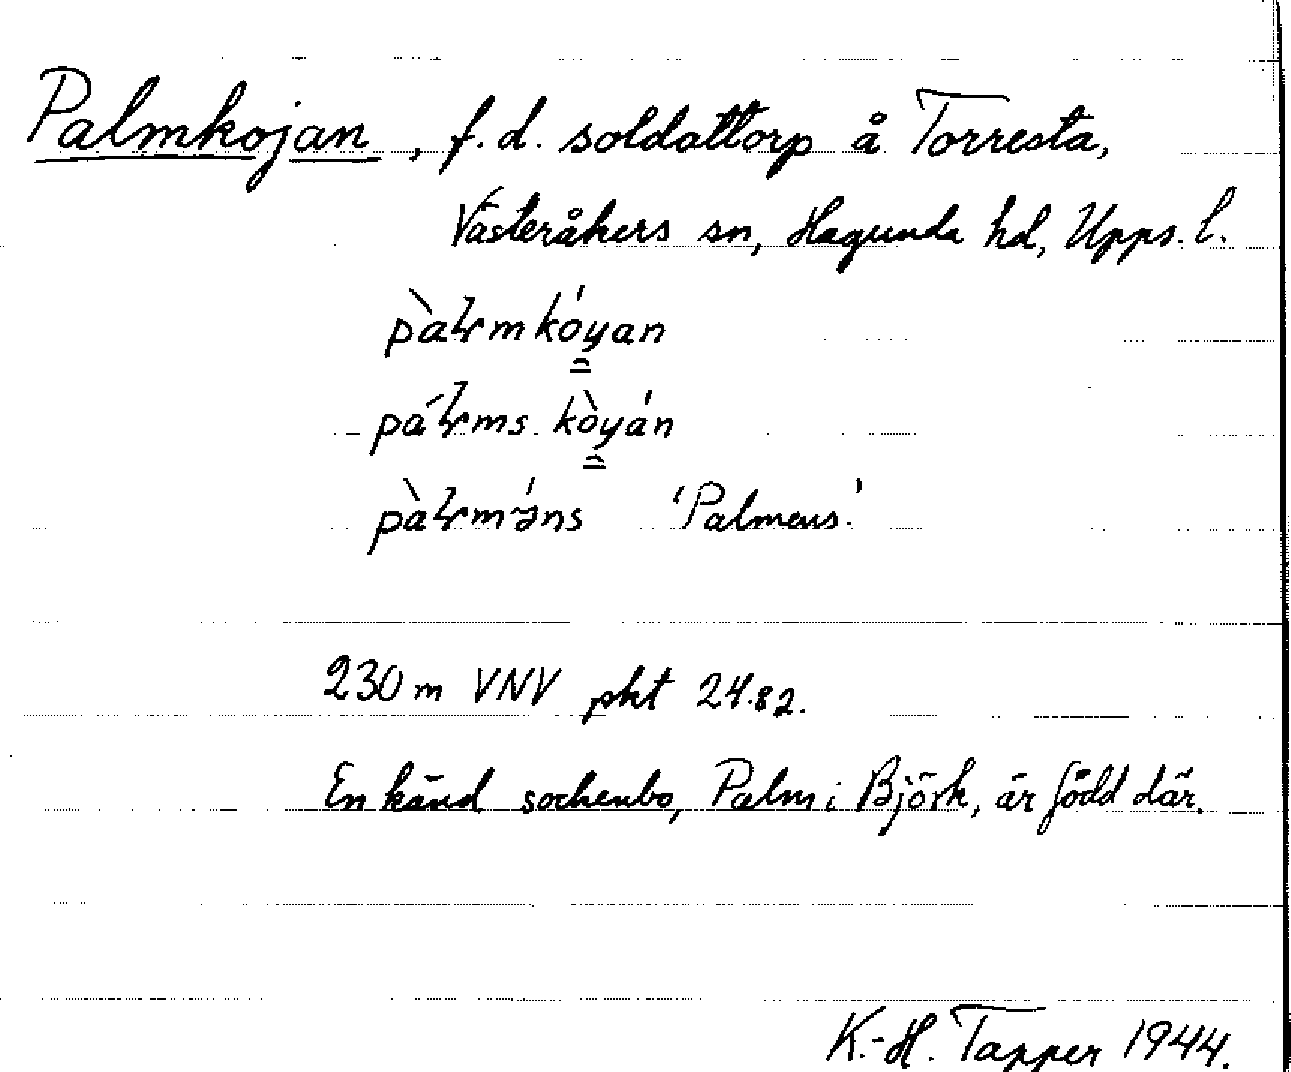 Palmkojan, f.d. soldattorp å Torresta,
Västeråkers sn, Hagunda hd, Upps. l.
pàɫmkóyan
páɫms kòyán
pàɫmə́ns 'Palmens'
230 m VNV pkt 24.82.
En känd sockenbo, Palm i Björk, är född där.
K.-H. Tapper 1944.